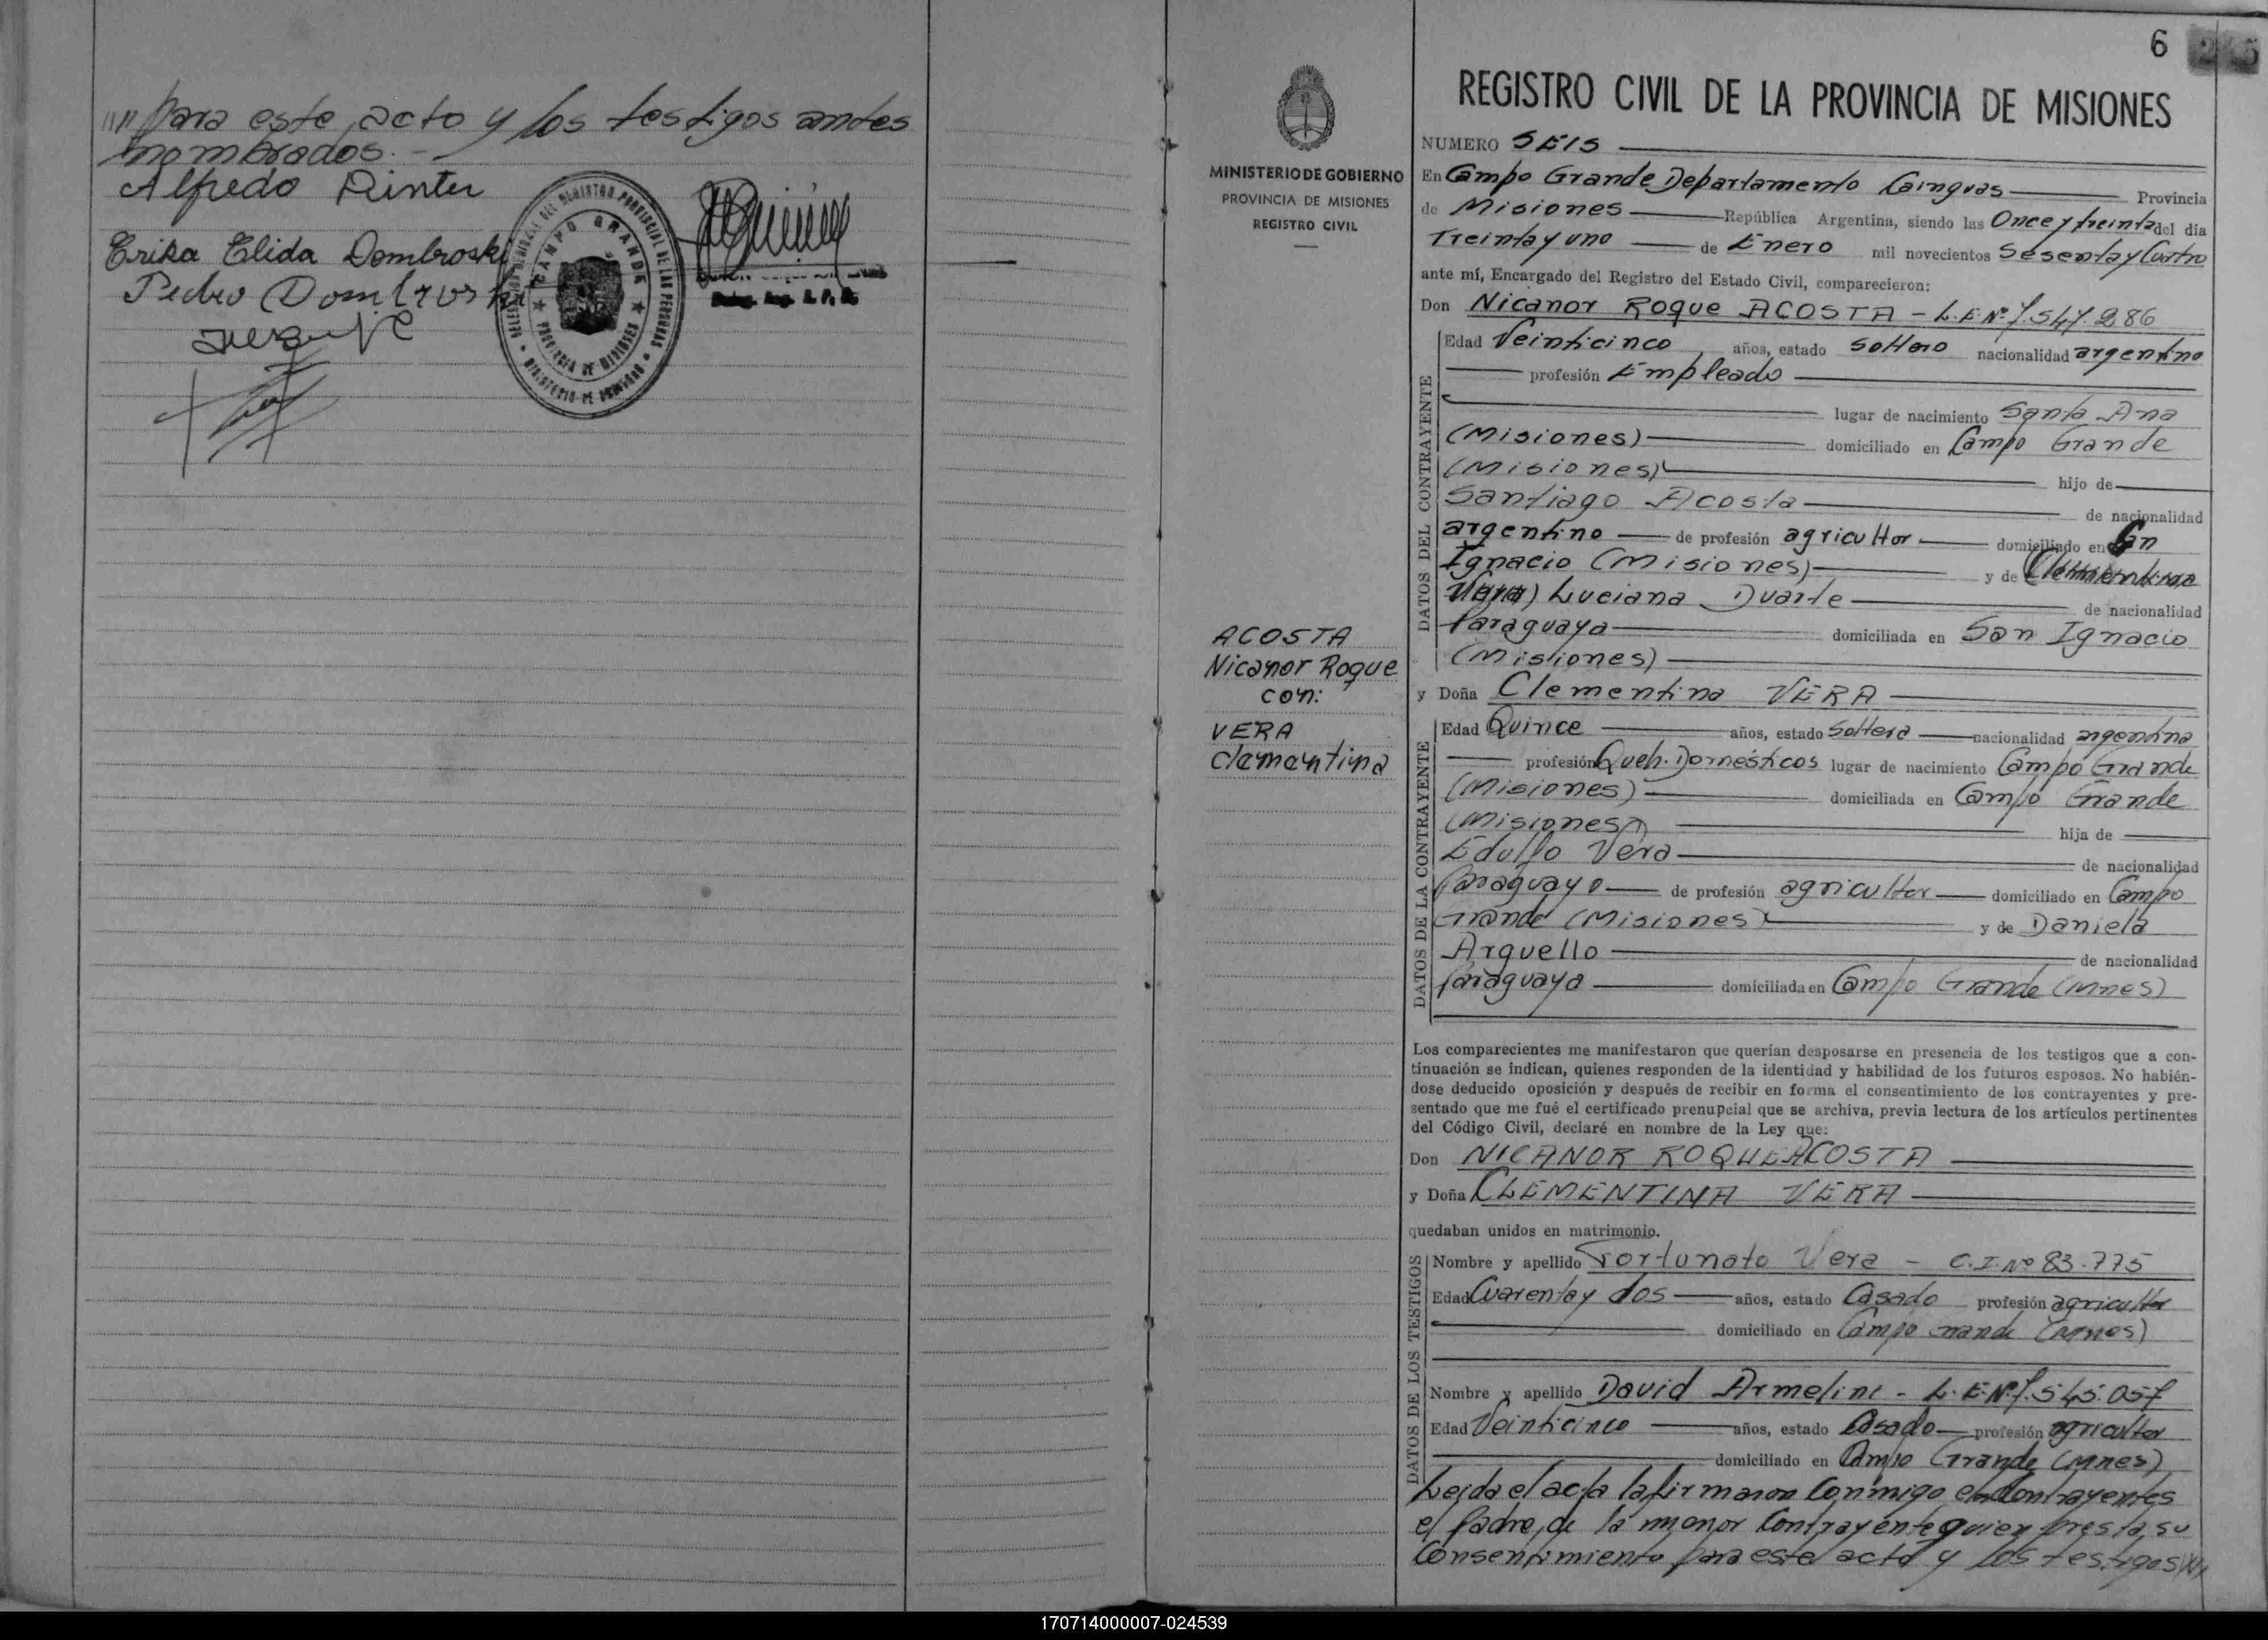 //// para este acto y los testigos antes
nombrados.-
Alfredo Rinter
Erika Elida Dombroski
Pedro Dombroski
CAMPO GRANDE
PROVINCIA DE MISIONES
6
REGISTRO CIVIL DE LA PROVINCIA DE MISIONES
MINISTERIO DE GOBIERNO
PROVINCIA DE MISIONES
REGISTRO CIVIL
ACOSTA
Nicanor Roque
con:
VERA
Clementina
NUMERO SEIS
En Campo Grande Departamento Cainguas Provincia
de Misiones República Argentina, siendo las Once y treinta del día
Treinta y uno de Enero mil novecientos Sesenta y Cuatro
ante mí, Encargado del Registro del Estado Civil, comparecieron:
Don Nicanor Roque ACOSTA - L.E.Nº 7.547.286
DATOS DEL CONTRAYENTE
Edad Veinticinco años, estado soltero nacionalidad argentino
profesión Empleado
lugar de nacimiento Santa Ana
(Misiones) domiciliado en Campo Grande
(Misiones) hijo de
Santiago Acosta de nacionalidad
argentino de profesión agricultor domiciliado en San
Ignacio (Misiones) y de Clementina
Vera) Luciana Duarte de nacionalidad
Paraguaya domiciliada en San Ignacio
(Misiones)
y Doña Clementina VERA
DATOS DE LA CONTRAYENTE
Edad Quince años, estado Soltera nacionalidad argentina
profesión Queh. Domésticos lugar de nacimiento Campo Grande
(Misiones) domiciliada en Campo Grande
(Misiones) hija de
Edulfo Vera de nacionalidad
Paraguayo de profesión agricultor domiciliado en Campo
Grande (Misiones) y de Daniela
Arguello de nacionalidad
Paraguaya domiciliada en Campo Grande (Mnes)
Los comparecientes me manifestaron que querían desposarse en presencia de los testigos que a con-
tinuación se indican, quienes responden de la identidad y habilidad de los futuros esposos. No habién-
dose deducido oposición y después de recibir en forma el consentimiento de los contrayentes y pre-
sentado que me fué el certificado prenupcial que se archiva, previa lectura de los artículos pertinentes
del Código Civil, declaré en nombre de la Ley que:
Don NICANOR ROQUE ACOSTA
y Doña CLEMENTINA VERA
quedaban unidos en matrimonio.
DATOS DE LOS TESTIGOS
Nombre y apellido Fortunato Vera - C.I. Nº 83.775
Edad Cuarenta y dos años, estado Casado profesión agricultor
domiciliado en Campo Grande (Mnes)
Nombre y apellido David Armelini - L.E.Nº 7.545.057
Edad Veinticinco años, estado Casado profesión agricultor
domiciliado en Campo Grande (Mnes)
Leida el acta la firmaron conmigo los contrayentes
el padre de la menor Contrayente quien presta su
Consentimiento para este acto y los testigos ////
170714000007-024539